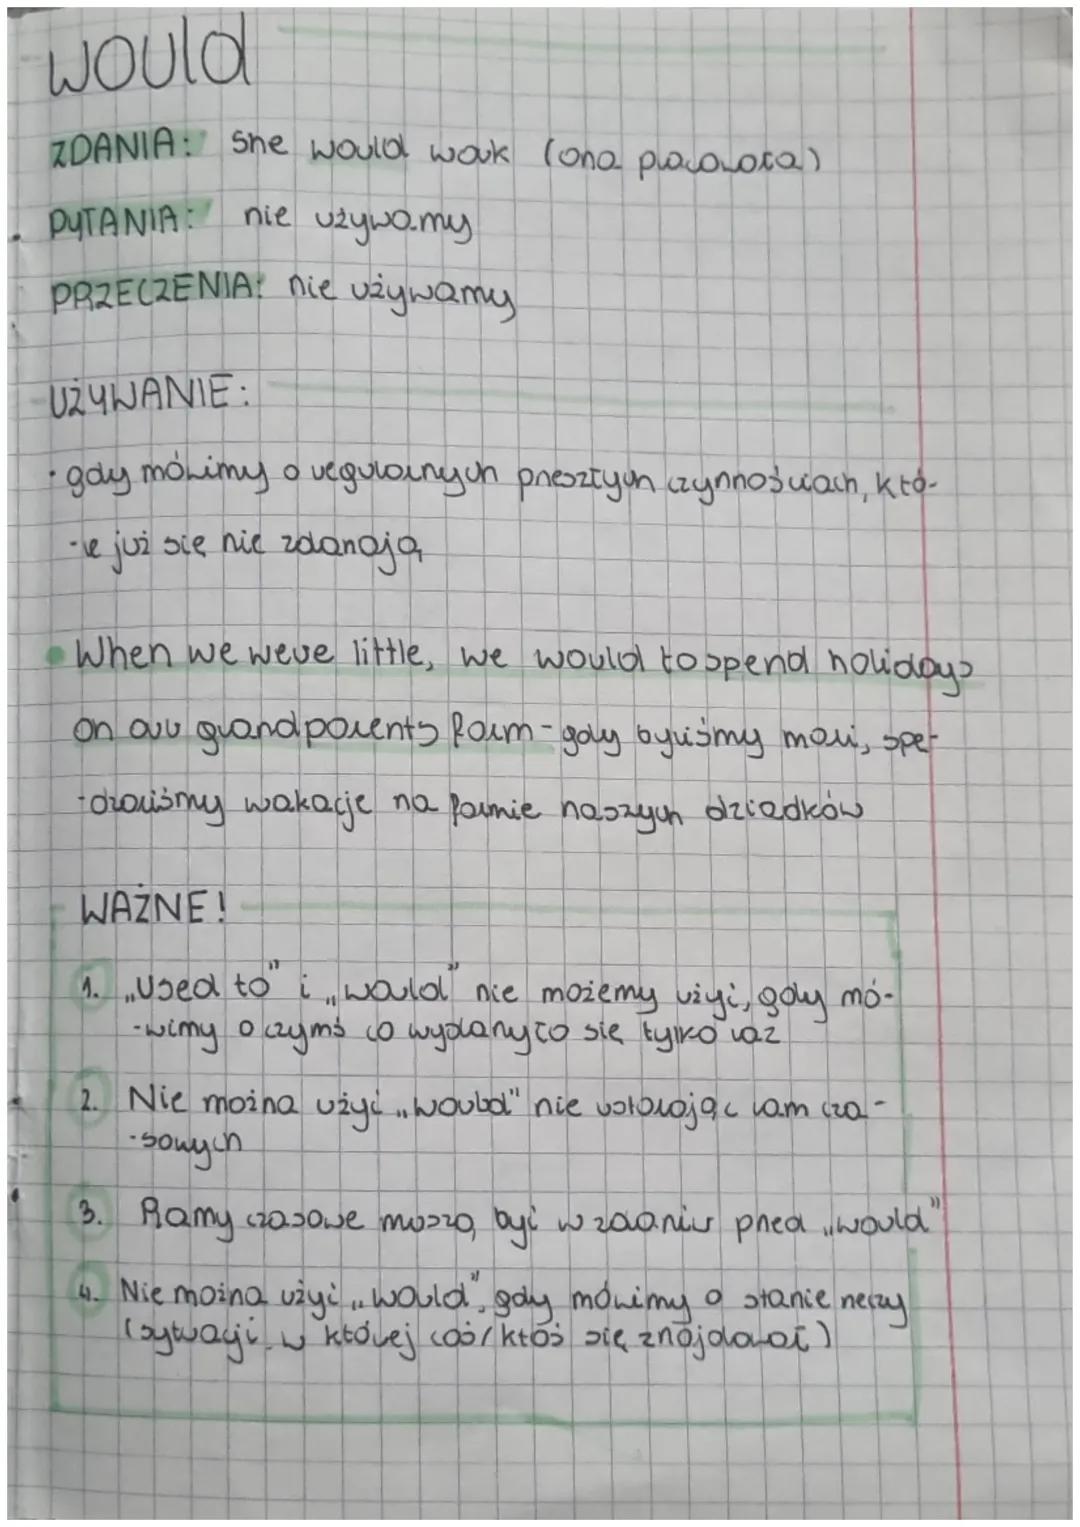 would
ZDANIA: She would work (ona pracowała)
PYTANIA: nie używamy
PRZECZENIA: nie używamy
UŻYWANIE:
• gdy mówimy o regularnych przeszłych czynnościach, któ-
-re już się nie zdarzają
• When we were little, we would to spend holidays
on our grandparents farm - gdy byliśmy mali, spę-
-dzaliśmy wakacje na farmie naszych dziadków
WAŻNE!
1. „Used to" i „would" nie możemy użyć, gdy mó-
-wimy o czymś co wydarzyło się tylko raz
2. Nie można użyć „would" nie ustalając ram cza-
-sowych
3. Ramy czasowe muszą być w zdaniu przed „would"
4. Nie można użyć „would", gdy mówimy o stanie rzeczy
(sytuacji w której coś/ktoś się znajdował)